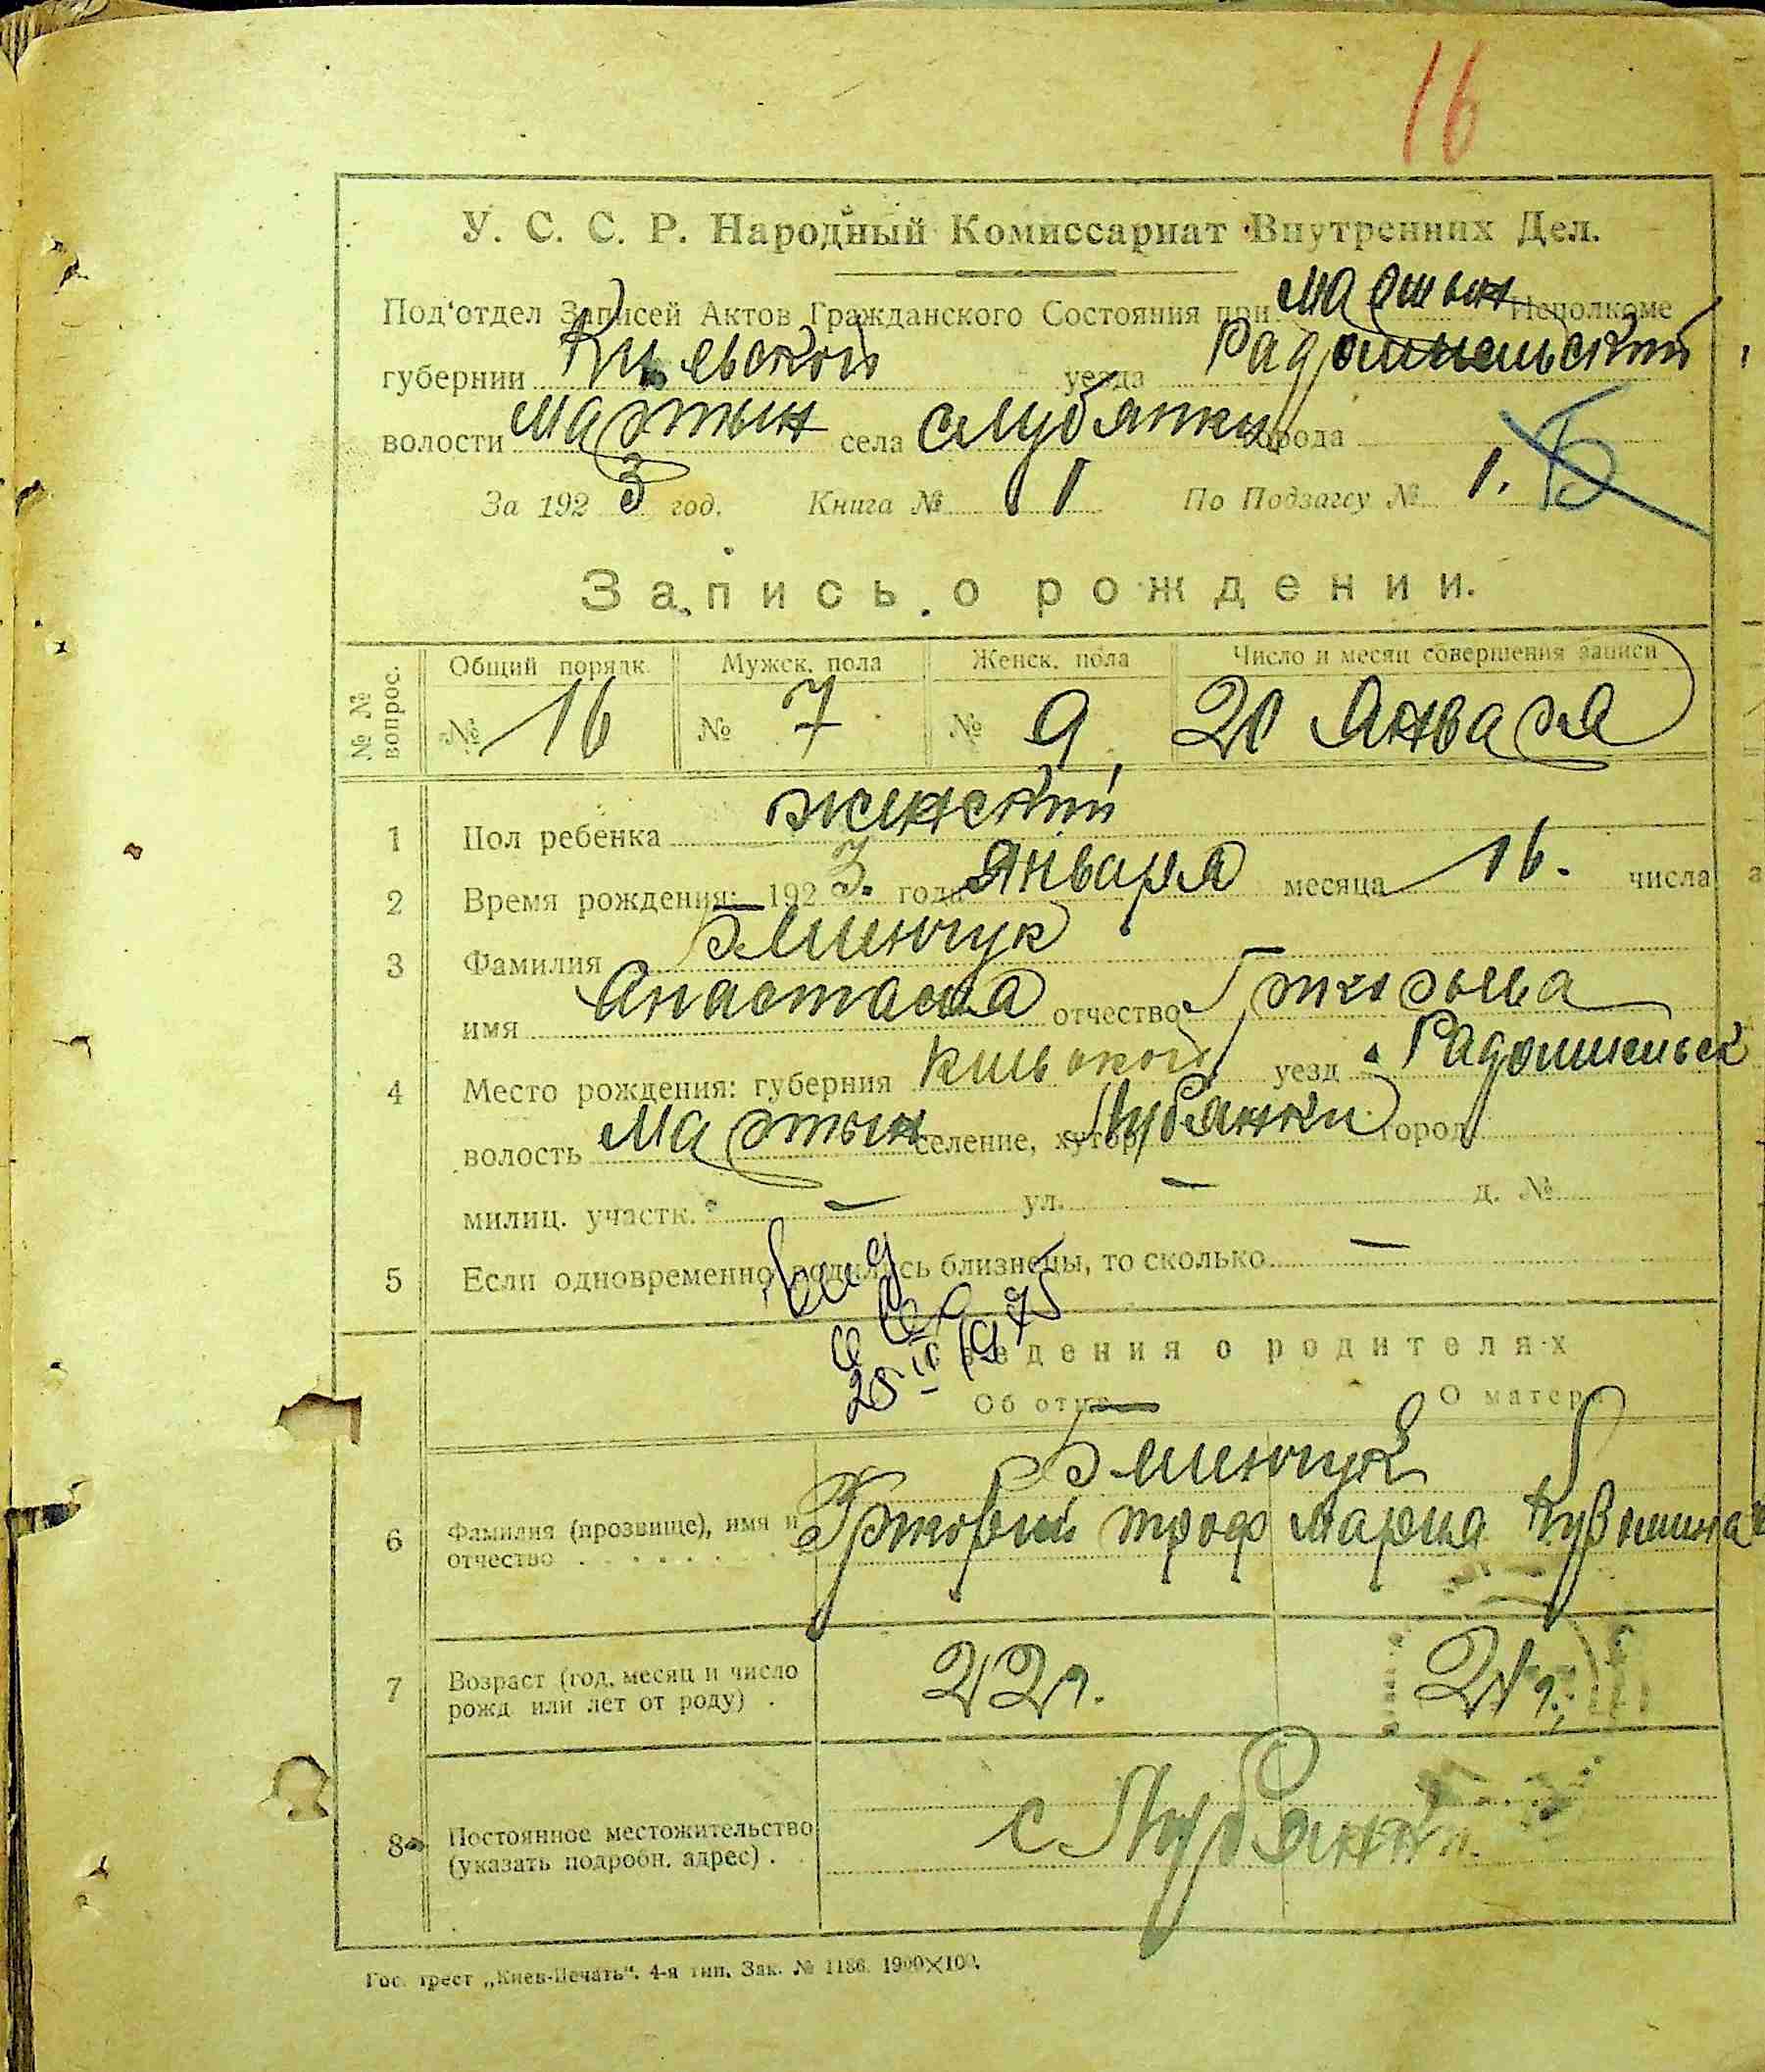 16
У. С. С. Р. Народный Комиссариат Внутренних Дел.
Под'отдел Записей Актов Гражданского Состояния при Мартын Исполкоме
губернии Киевской уезда Радомысльский
волости Мартын села с Лубянки города
За 1923 год. Книга № 1 По Подзагсу № 1. Б
Запись о рождении.
№ № вопрос. Общий порядк. Мужск. пола Женск. пола Число и месяц совершения записи
№ 16 № 7 № 9 20 Января
1 Пол ребенка женский
2 Время рождения: 1923. года Января месяца 16. числа
3 Фамилия Блинчук
имя Анастасия отчество
4 Место рождения: губерния уезд Радомысльск
волость Мартын селение, хутор Лубянки город
милиц. участк. – ул. – д. №
5 Если одновременно родились близнецы, то сколько –
1975
Сведения о родителях
Об отце О матери
Блинчук
6 Фамилия (прозвище), имя и Григорий Троф Мария
отчество
7 Возраст (год, месяц и число 22 г. 21 г.
рожд. или лет от роду) .
8 Постоянное местожительство с Лубянки.
(указать подробн. адрес) .
Гос. трест „Киев-Печать". 4-я тип. Зак. № 1186. 1900×100.